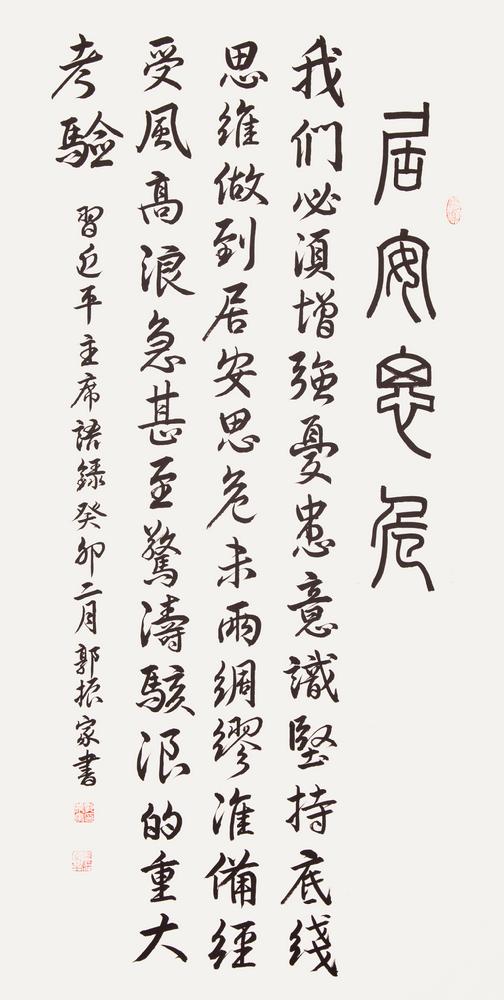 居安思危
我们必湏增強憂患意識堅持底綫
思維做到居安思危未雨綢繆准備經
受風高浪急甚至驚濤駭浪的重大
考驗
習近平主席語録癸卯二月郭振家書